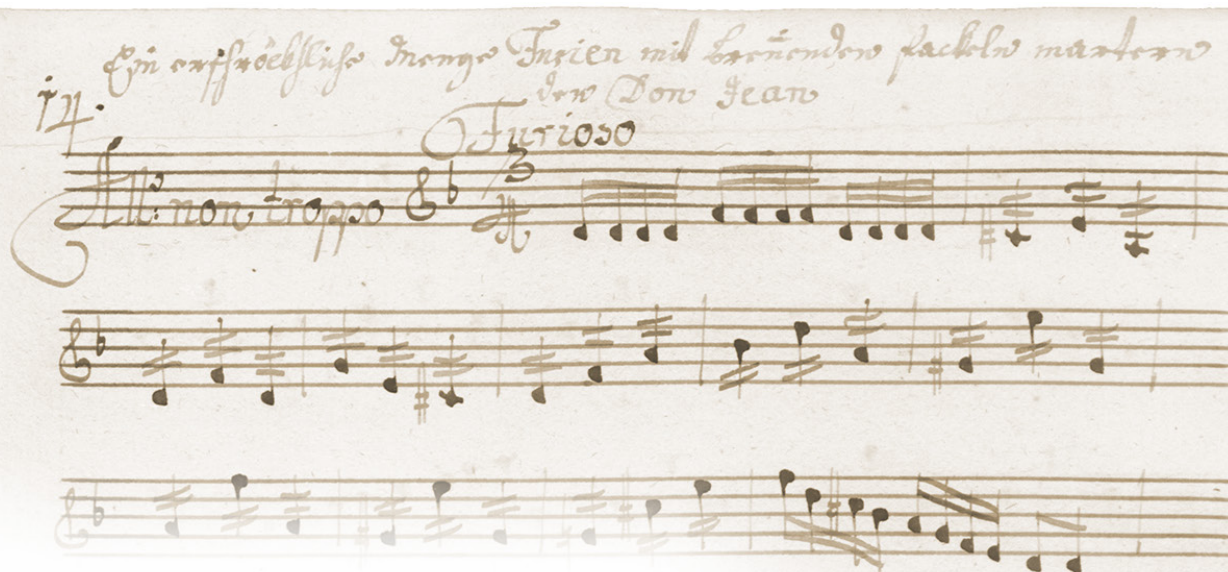 Ein erschröckliche Menge Furien mit breñenden fackeln martern
den Don Jean
14.
Furioso
All: non troppo 3/4